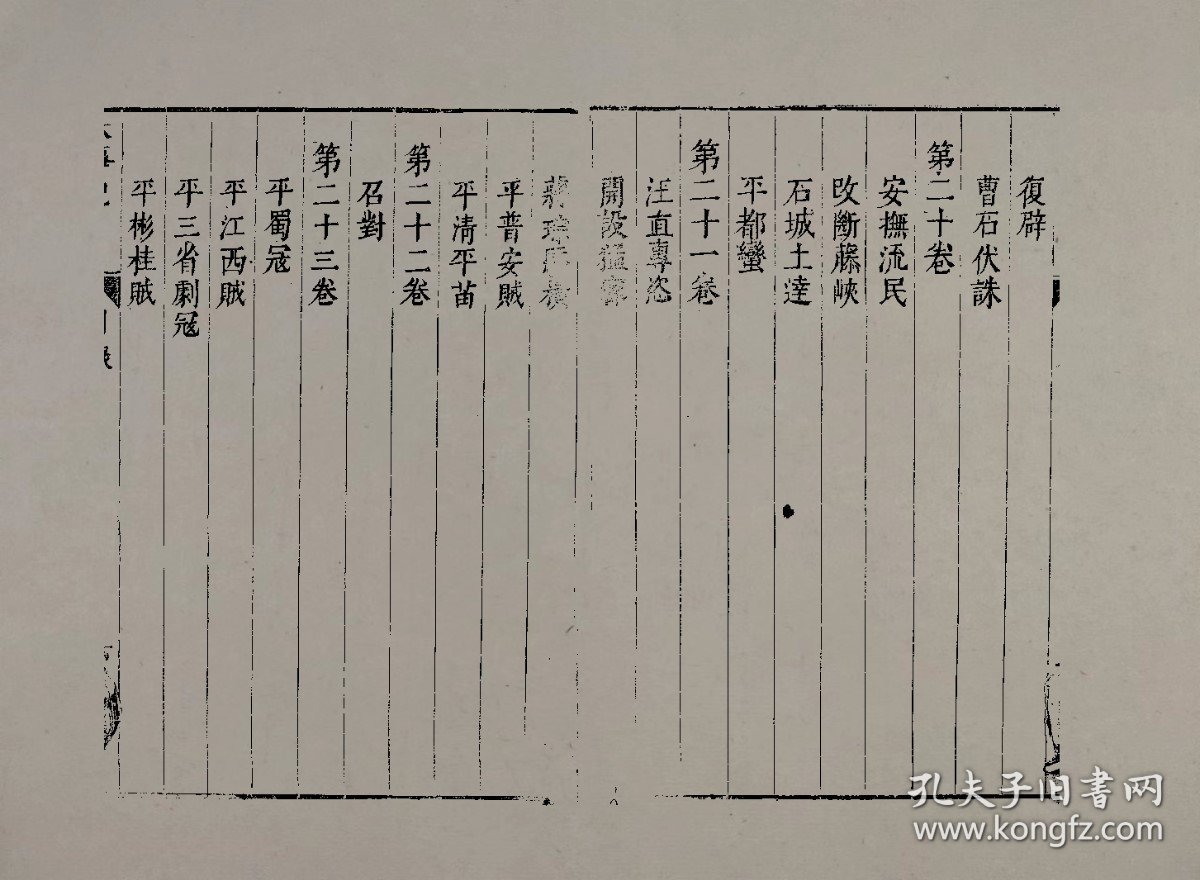 復辟
曹石伏誅
第二十卷
安撫流民
改斷藤峽
石城土達
平都蠻
第二十一卷
汪直專恣
開設
平普安賊
平清平苗
第二十二卷
召對
第二十三卷
平蜀寇
平江西賊
平三省劇寇
平彬桂賊
孔夫子旧书网
www.kongfz.com